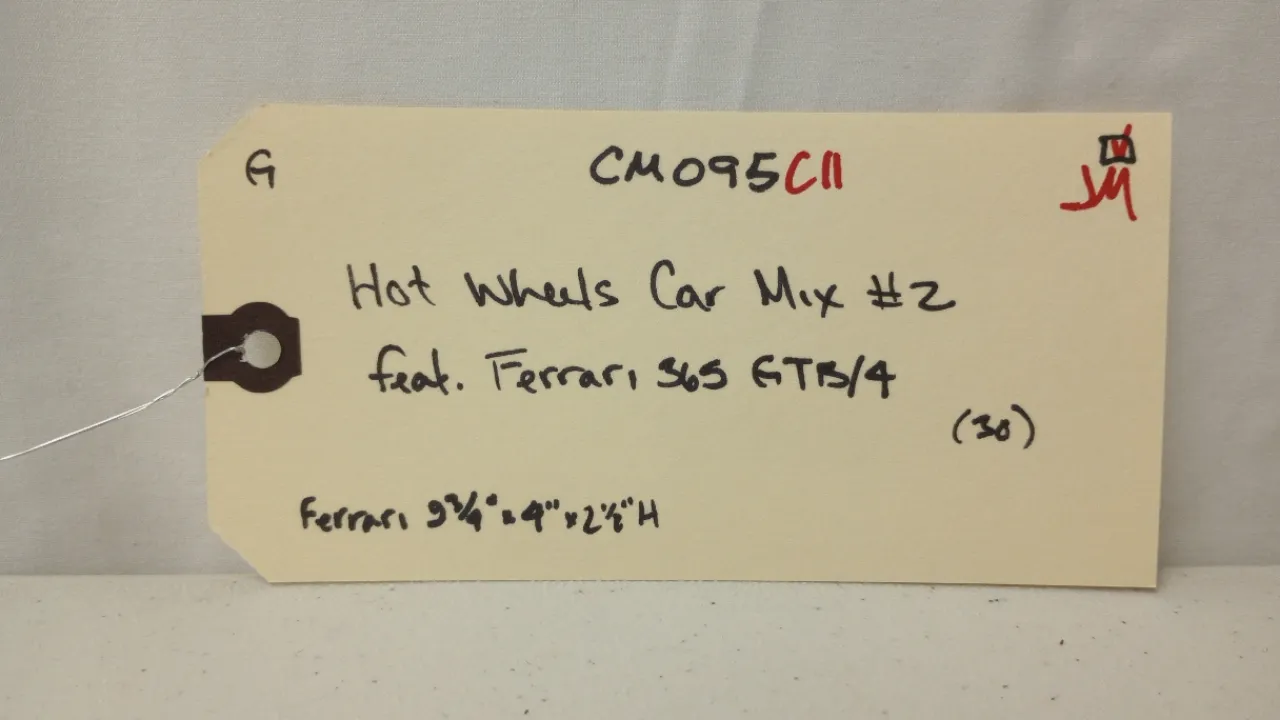 G
CM095C11
JM
Hot Wheels Car Mix #2
feat. Ferrari 365 GTB/4
(30)
Ferrari 9¾" x 4" x 2½" H